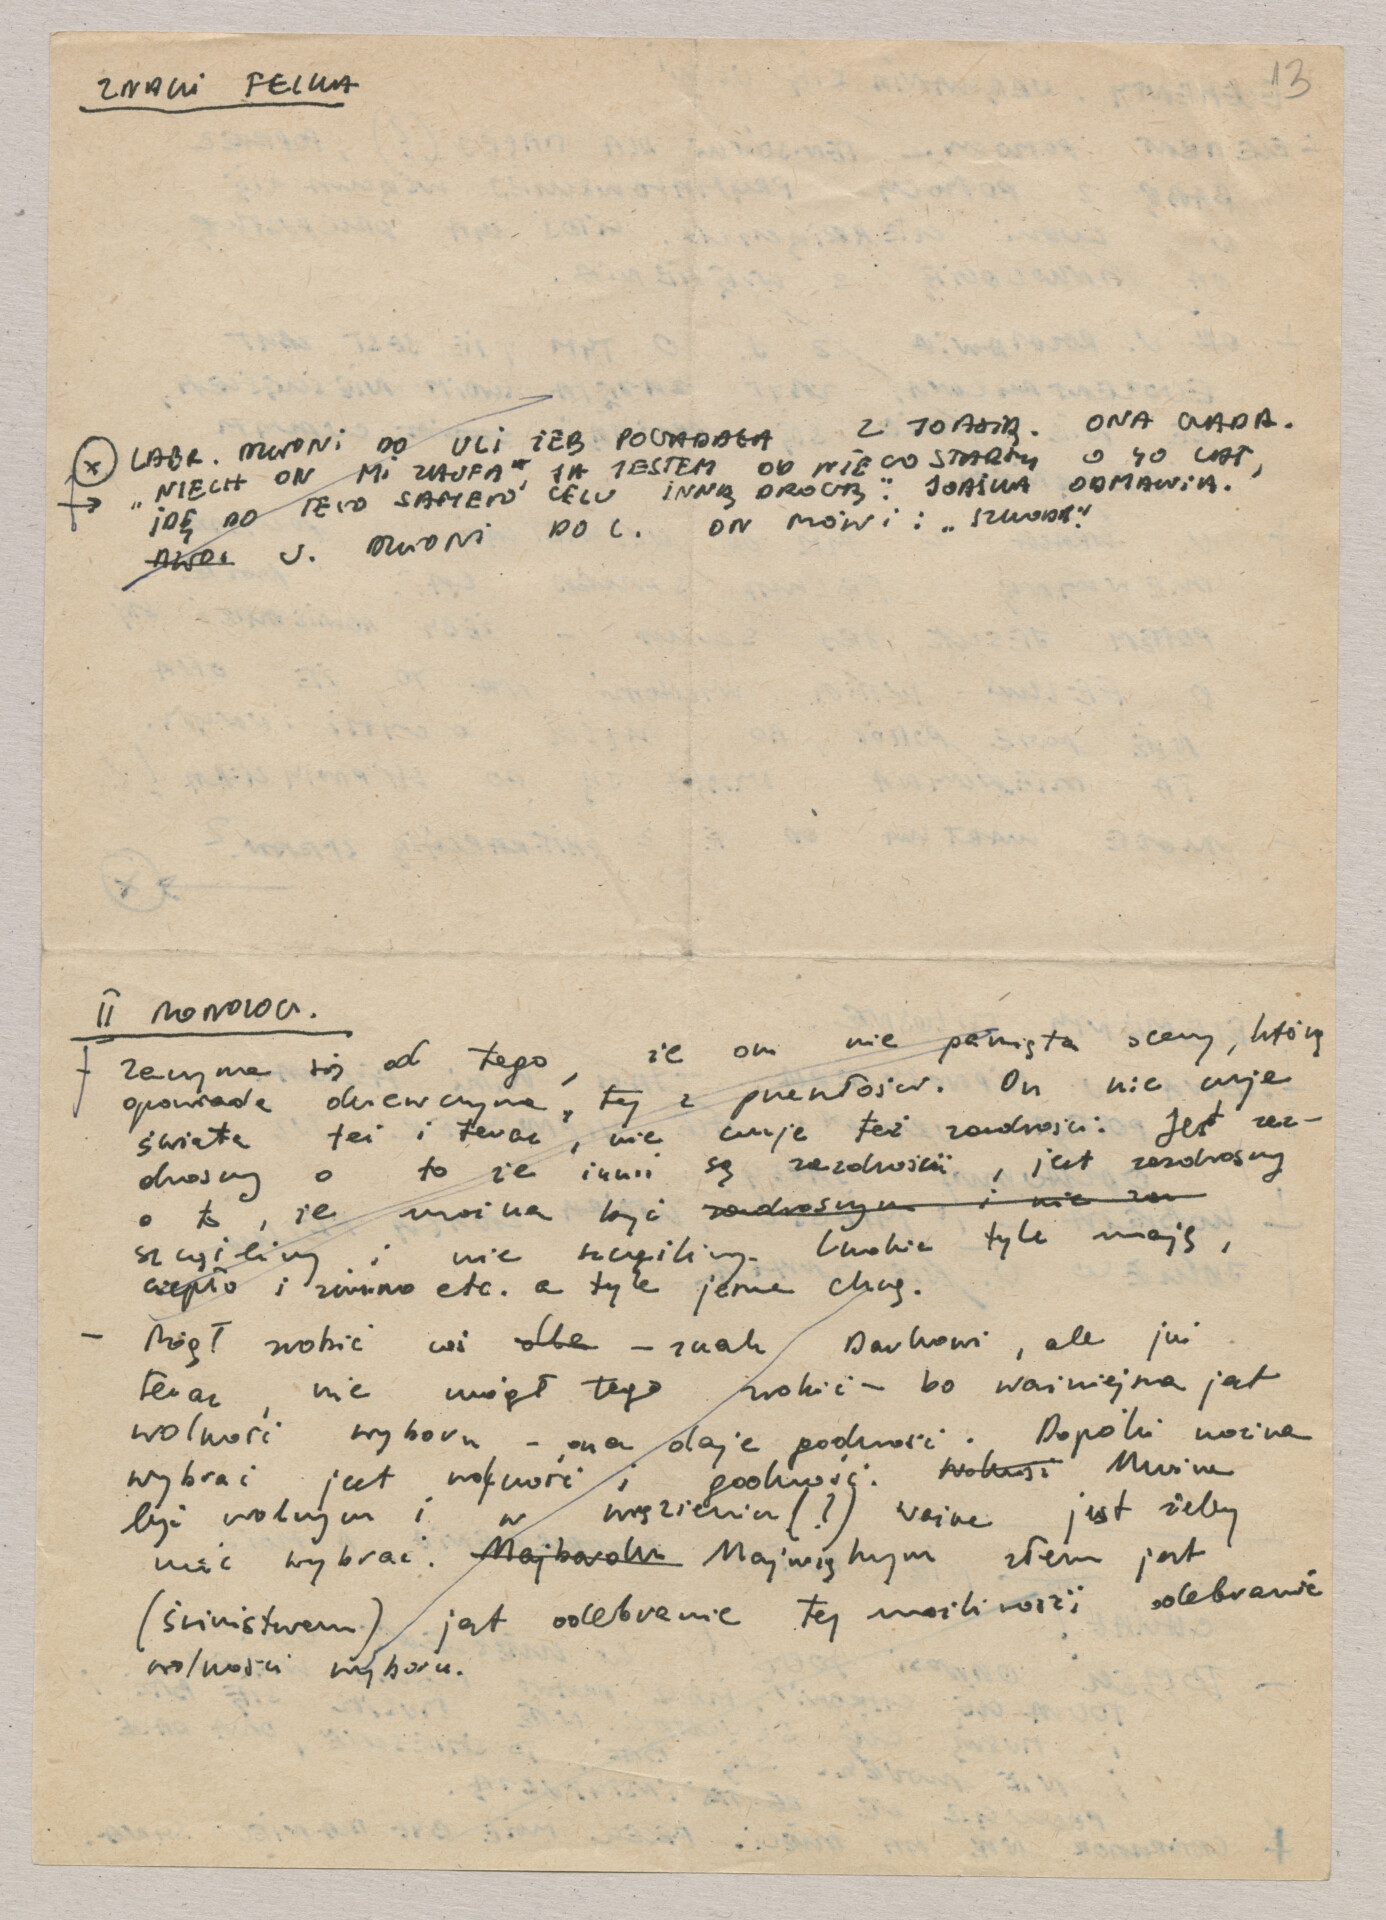 13
ZNAKI FELKA
LABR. DZWONI DO ULI ŻEB POGADAŁA Z JOASIĄ. ONA GADA.
"NIECH ON MI ZAUFA", JA JESTEM OD NIEGO STARSZY O 40 LAT,
IDĘ DO TEGO SAMEGO CELU INNĄ DROGĄ". JOAŚKA ODMAWIA.
U. DZWONI DO L. ON MÓWI: "SZKODA"
II MONOLOG.
Zaczyna się od tego, że on nie pamięta sceny, którą
opowiada dziewczyna, tej z przeszłości. On nie czuje
świata też i teraz, nie czuje też zazdrości. Jest zaz-
drosny o to że inni są zazdrośni, jest zazdrosny
o to, że można być zazdrosnym i nie zaz
szczęśliwy i nie szczęśliwy. Ludzie tyle mają,
ciepło i zimno etc. a tyle jeszcze chcą.
- Mógł zrobić coś dla - znak Darkowi, ale już
teraz, nie mógł tego zrobić - bo ważniejsza jest
wolność wyboru - ona daje godność. Dopóki można
wybrać jest wolność i godność. Wolność Można
być wolnym i w więzieniu (?) ważne jest żeby
móc wybrać. Najbardz Największym złem jest
(świństwem) jest odebranie tej możliwości odebranie
wolności wyboru.